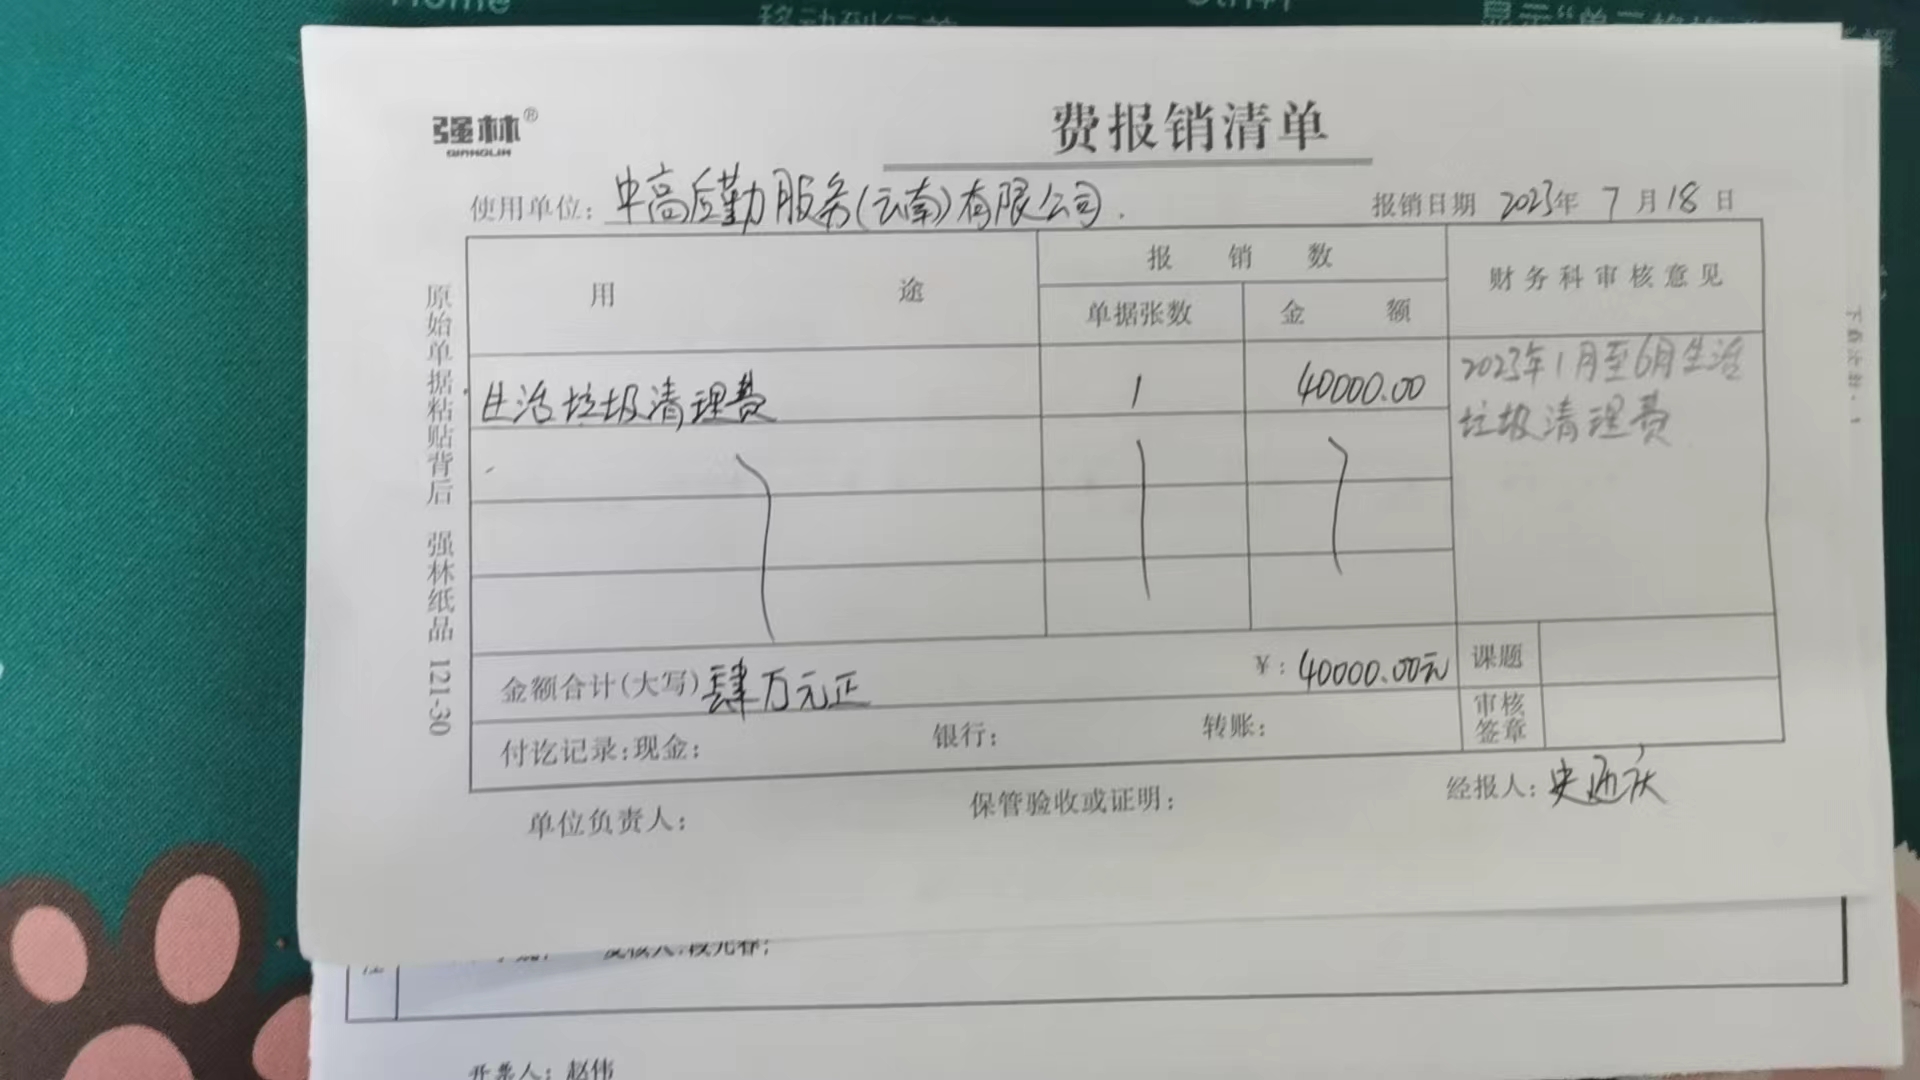 Home
移动到行首
强林®
QIANGLIN
费报销清单
使用单位: 中高后勤服务(云南)有限公司.
报销日期 2023年 7 月 18 日
原始单据粘贴背后 强林纸品 121-30
用 途
报 销 数
单据张数
金 额
财务科审核意见
生活垃圾清理费
1
40000.00
2023年1月至6月生活
垃圾清理费
金额合计(大写) 肆万元正
¥: 40000.00元
课题
审核
签章
付讫记录:现金:
银行:
转账:
单位负责人:
保管验收或证明:
经报人:
开票人: 赵伟